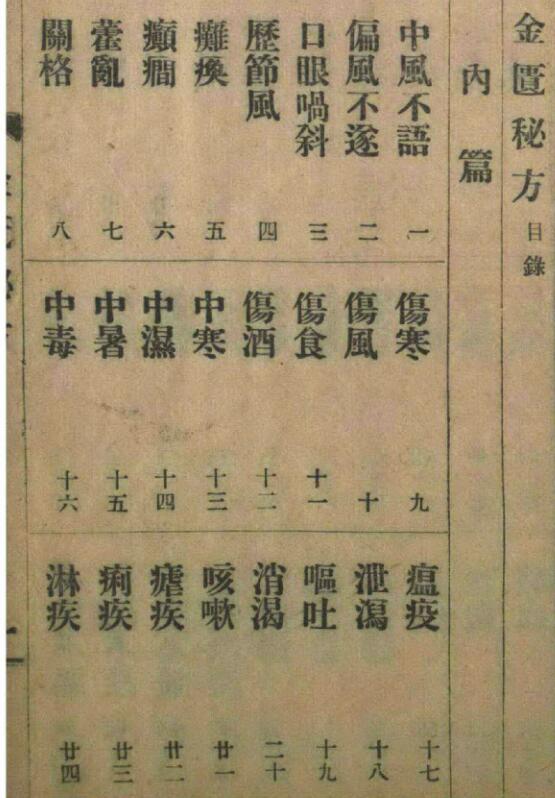 金匱秘方目錄
內篇
中風不語 一
偏風不遂 二
口眼喎斜 三
歷節風 四
癱瘓 五
癲癇 六
藿亂 七
關格 八
傷寒 九
傷風 十
傷食 十一
傷酒 十二
中寒 十三
中濕 十四
中暑 十五
中毒 十六
瘟疫 十七
泄瀉 十八
嘔吐 十九
消渴 二十
咳嗽 廿一
瘧疾 廿二
痢疾 廿三
淋疾 廿四